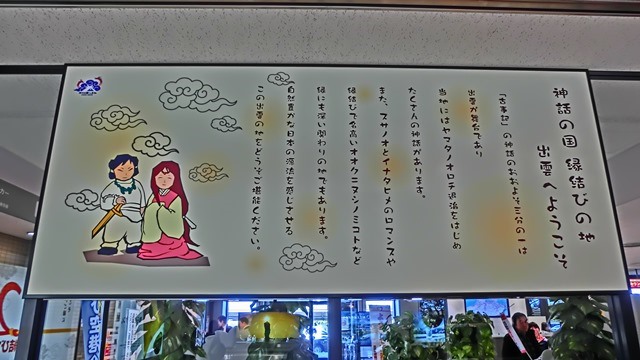 神話の国 縁結びの地
出雲へようこそ
「古事記」の神話のおおよそ三分の一は
出雲が舞台であり
当地にはヤマタノオロチ退治をはじめ
たくさんの神話があります。
また、スサノオとイナタヒメのロマンスや
縁結びで名高いオオクニヌシノミコトなど
縁にも深い関わりの地でもあります。
自然豊かな日本の源流を感じさせる
この出雲の地をどうぞご堪能ください。
び空港